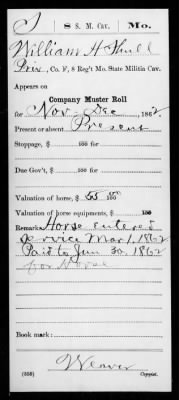 S | 8 S. M. Cav. | Mo.
William H Shull
Priv, Co. F, 8 Reg't Mo. State Militia Cav.
Appears on
Company Muster Roll
for Nov & Dec, 1862.
Present or absent Present
Stoppage, $ 100 for
Due Gov't, $ 100 for
Valuation of horse, $ 55 00/100
Valuation of horse equipments, $ 100
Remarks: Horse entered
service Mar 1, 1862
Paid to Jun 30, 1862
for Horse
Book mark:
Weaver
(358) Copyist.